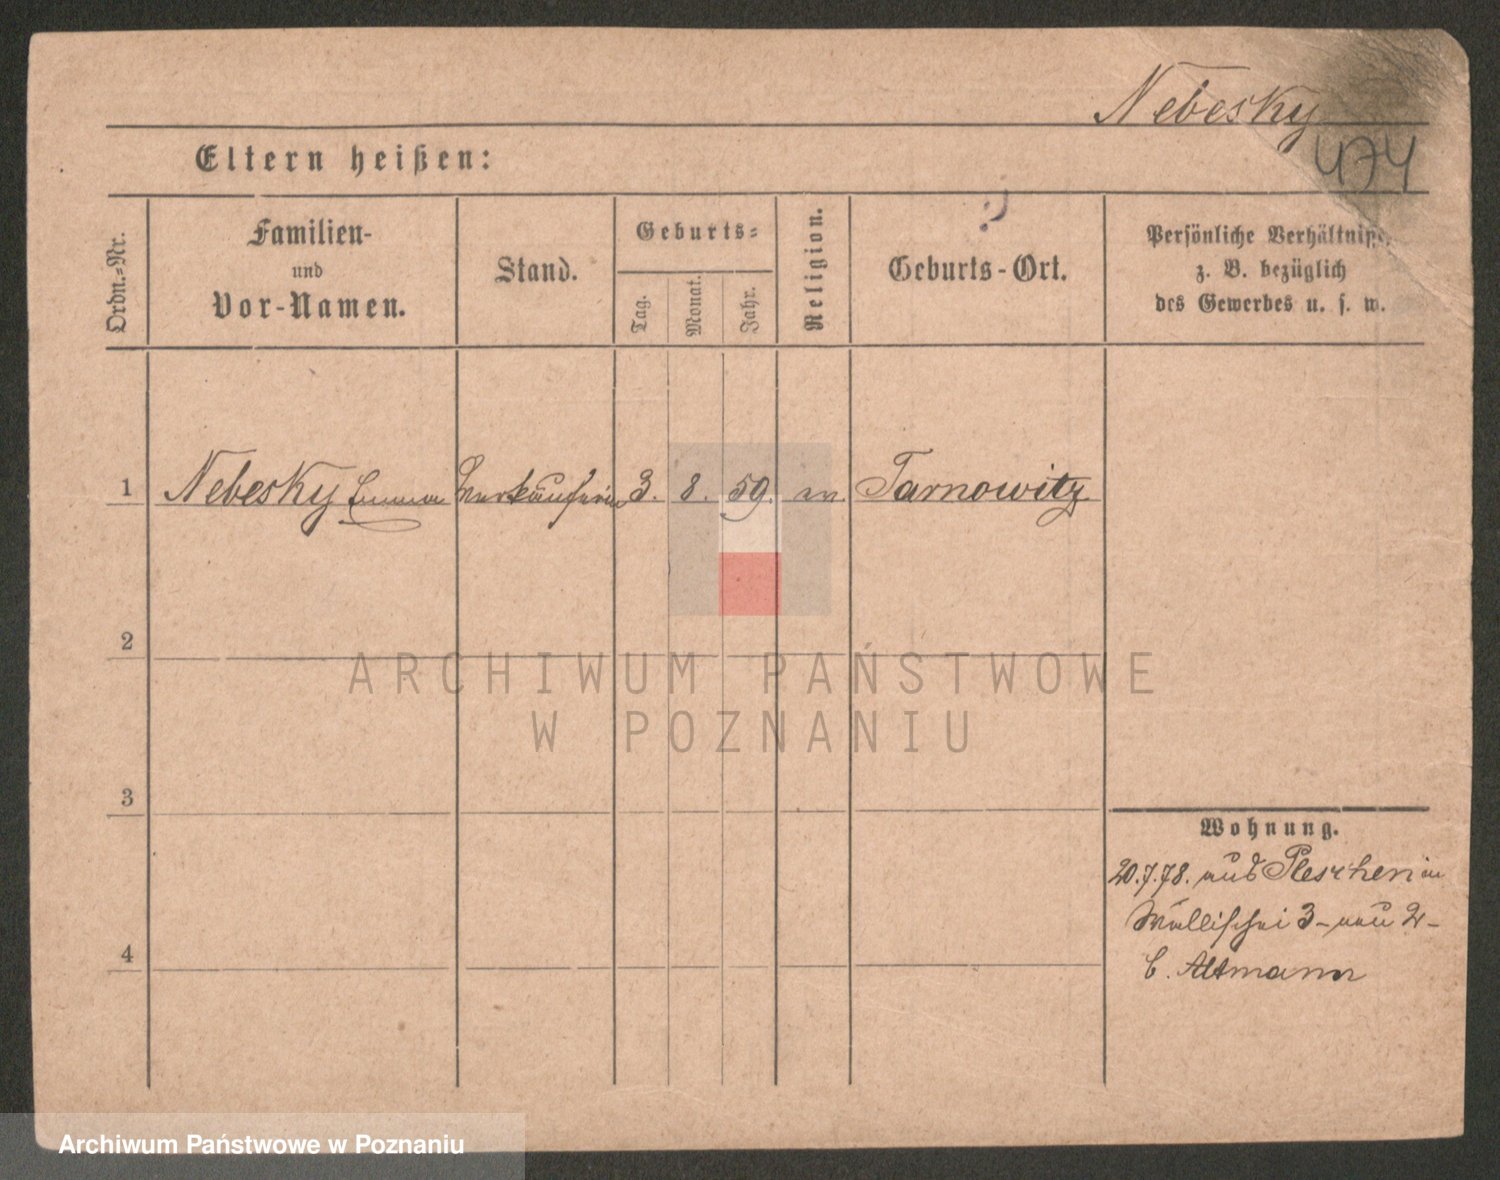 Nebesky
474
Eltern heißen:
Ordn.-Nr.
Familien-
und
Vor-Namen.
Stand.
Geburts-
Tag.
Monat.
Jahr.
Religion.
Geburts-Ort.
Persönliche Verhältnisse
z. B. bezüglich
des Gewerbes u. s. w.
1 Nebesky Emma Verkäuferin 3. 8. 59. ev. Tarnowitz
2
3
4
Wohnung.
20.7.78. aus Pleschen in
Wallischei 3- neu 2-
b. Altmann
ARCHIWUM PAŃSTWOWE
W POZNANIU
Archiwum Państwowe w Poznaniu